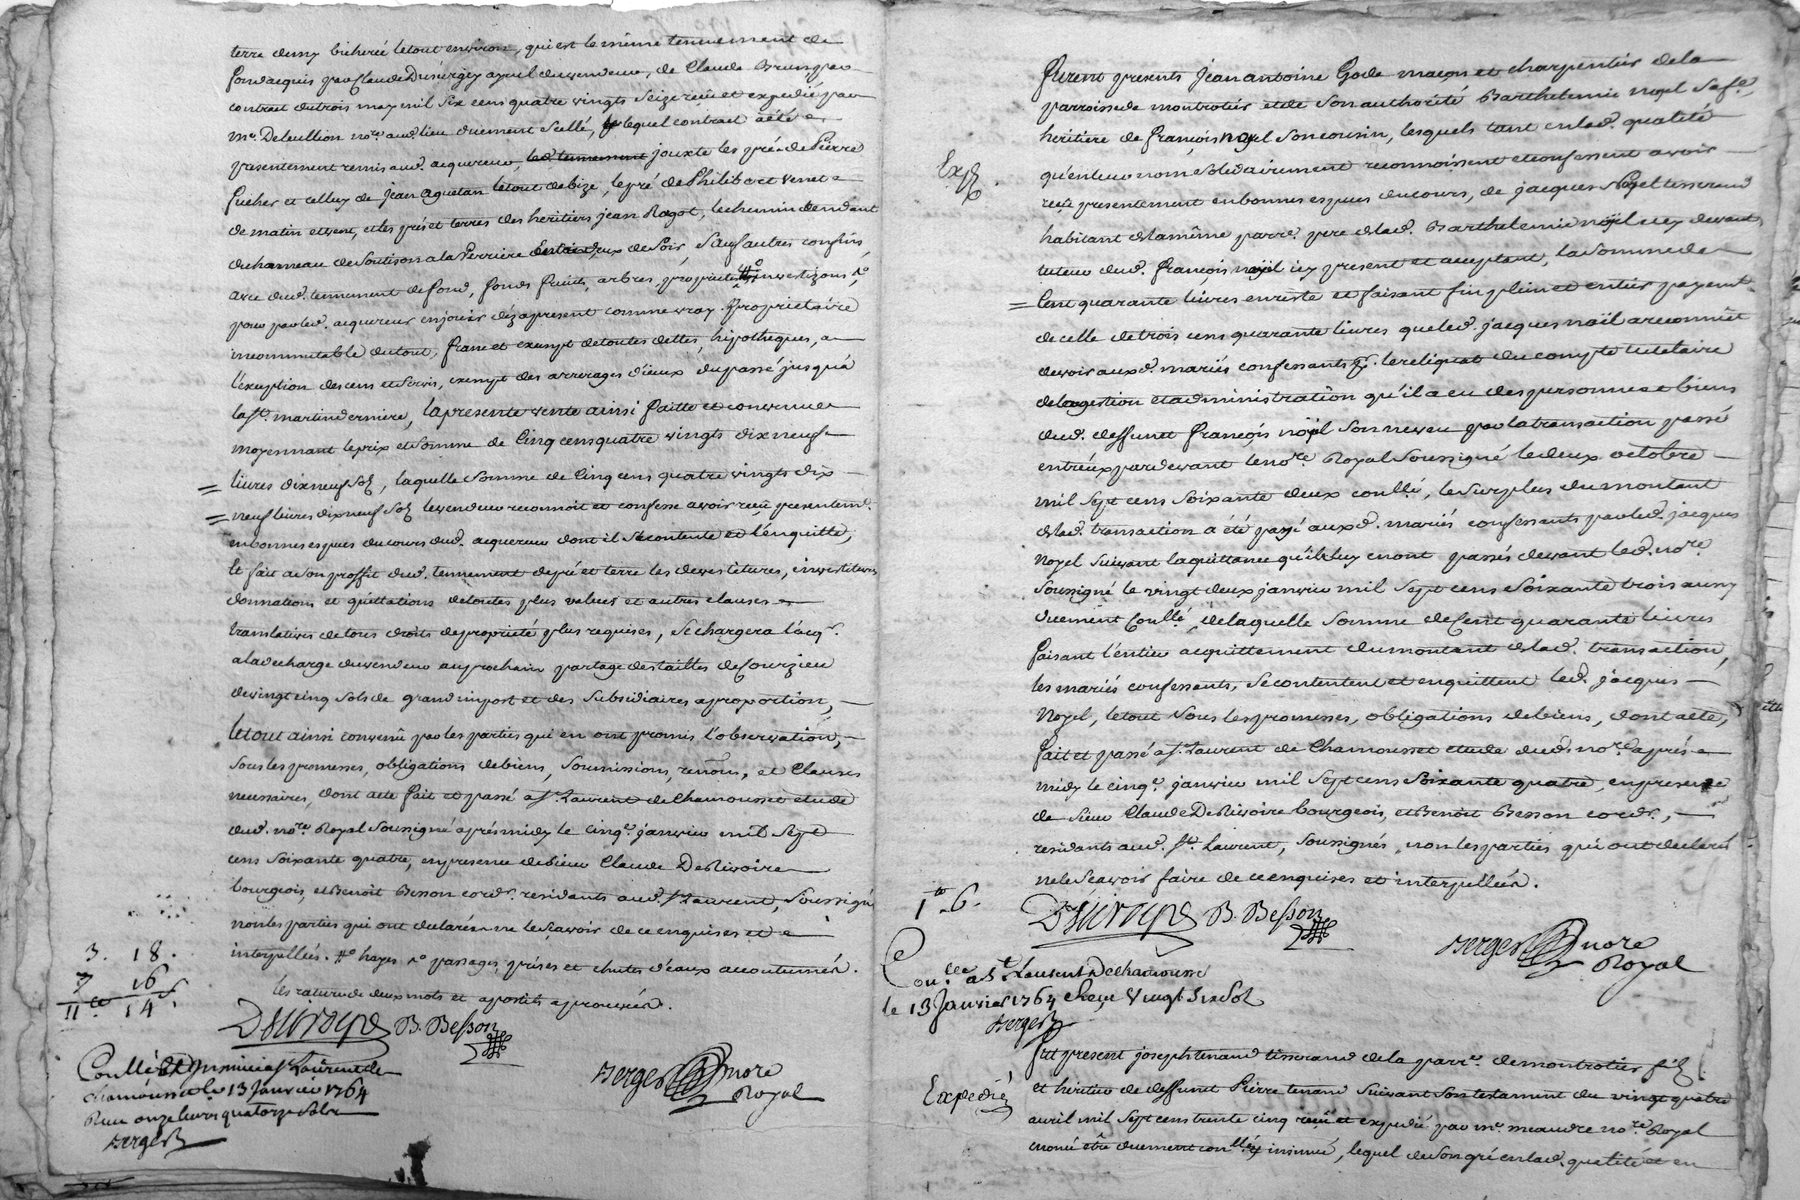 terre demy bicherée letout environ, qui est le même tenement de
fond acquis par Claude Dusurgey ayeul du vendeur, de Claude Brun par
contrait du trois may mil six cens quatre vingts seize receu et expedié par
Mr. Deleullion nore. aud. lieu duement scellé, lequel contrait a été
presentement remis aud. acquereur, led. tennement jouxte les prés de Pierre
et celluy de jean letout de bize, le pré de Philibert
de matin et vent, et les prés et terres des heritiers jean Ragot, le chemin tendant
du hameau de Soutison a la Perriere de soir, sauf autres confins,
avec dud. tennement de fond, fonds fruits, arbres, proprietés investizons ro.
pour par led. acquereur en jouir dez apresent comme vray proprietaire
incommutable du tout, franc et exempt de toutes dettes, hipotheques, a
l'exeption des cens et servis, exempt des arrerages d'iceux du passé jusqu'a
la st. martin derniere, la presente vente ainsi faitte et convenue
moyennant le prix et somme de Cinq cens quatre vingts dix neuf
livres dix neuf sols, laquelle somme de Cinq cens quatre vingts dix
neuf livres dix neuf sols le vendeur reconnoit et confesse avoir receu presentemt.
en bonnes espues du cours dud. acquereur dont il se contente et l'en quitte,
Et fait a son proffit dud. tennement de pré et terre les devestitures, investitures
donnations et quittations de toutes plus values et autres clauses
translatives de tous droits de proprieté plus requises, se chargera l'acqr.
a la decharge du vendeur au prochain partage des tailles de Courzieu
de vingt cinq sols de grand impost et des subsidiaires a proportion,
le tout ainsi convenu par les parties qui en ont promis l'observation,
sous les promesses, obligations de biens, soumissions, renons., et Clauses
necessaires, dont acte fait et passé a St. Laurent de Chamousset etude
dud. nore. Royal soussigné aprés midy le cinqe. janvier mil sept
cens soixante quatre, en presence de sieur Claude DeRivoire
bourgeois, et Benoit Besson cordr. residants aud. St. Laurent, soussignés
non les parties qui ont declarés ne le sçavoir de ce enquises et
interpellées. #o hayes ro passages, prises et chutes d'eaux accoutumées.
les rature de deux mots et apostils aprouvées.
3. 18.
7 16
11lt 14s.
DeRivoire B. Besson
Berger nore
Royal
Coullé et insinué a St. Laurent de
chamousset le 13 Janvier 1764
Reçu onze livres quatorze sols
Berger
Furent presents jean antoine Gode maçon et charpentier de la
parroisse de montrotier et de son authorité Barthelemie noyel sa fe.
heritiere de françois noyel son cousin, lesquels tant en lad. qualité
Exp.
qu'en leur nom solidairement reconnoissent et confessent avoir
receu presentement en bonnes espues du cours, de jacques Noyel tisserand
habitant de la même parre. pere de lad. Barthelemie noyel et cy devant
tuteur dud. françois noyel icy present et aceptant, la somme de
Cent quarante livres en reste et faisant fin plein et entier payemt.
de celle de trois cens quarante livres que led. jacques noël a reconnüt
devoir aux d. mariés confessants pr. le reliquat du compte tutelaire
de la gestion et administration qu'il a eu des personne et biens
dud. deffunct françois noyel son neveu par la transaction passé
entr'eux par devant le nore. Royal soussigné le deux octobre
mil sept cens soixante deux coullé, le surplus du montant
de lad. transaction a été payé aux d. mariés confessants par led. jacques
Noyel suivant la quittance qu'ils luy en ont passés devant led. nore.
soussigné le vingt deux janvier mil sept cens soixante trois aussy
duement coullé, de laquelle somme de Cent quarante livres
faisant l'entier acquittement du montant de lad. transaction,
les mariés confessants, se contentent et en quittent led. jacques
Noyel, le tout sous les promesses, obligations de biens, dont acte,
fait et passé a St. Laurent de Chamousset etude dud. nore. aprés
midy le cinqe. janvier mil sept cens soixante quatre, en presence
de sieur Claude DeRivoire bourgeois, et Benoit Besson cordr.,
residants aud. St. Laurent, soussignés, non les parties qui ont declarés
ne le sçavoir faire de ce enquises et interpellées.
1lt. 6.
DeRivoire B. Besson
Berger nore
Royal
Conllé a St. Laurent De chamoussé
le 13 Janvier 1764 Reçu Vingt six sols
Berger
Expedié
Fut present joseph tenaud tisserand de la parre. de montrotier fils
et heritier de deffunct Pierre tenaud suivant son testament du vingt quatre
avril mil sept cens trente cinq receu et expedié par Mr. meandre nore. Royal
enoncé être duement conllé et insinué, lequel de son gré en lad. qualité et en